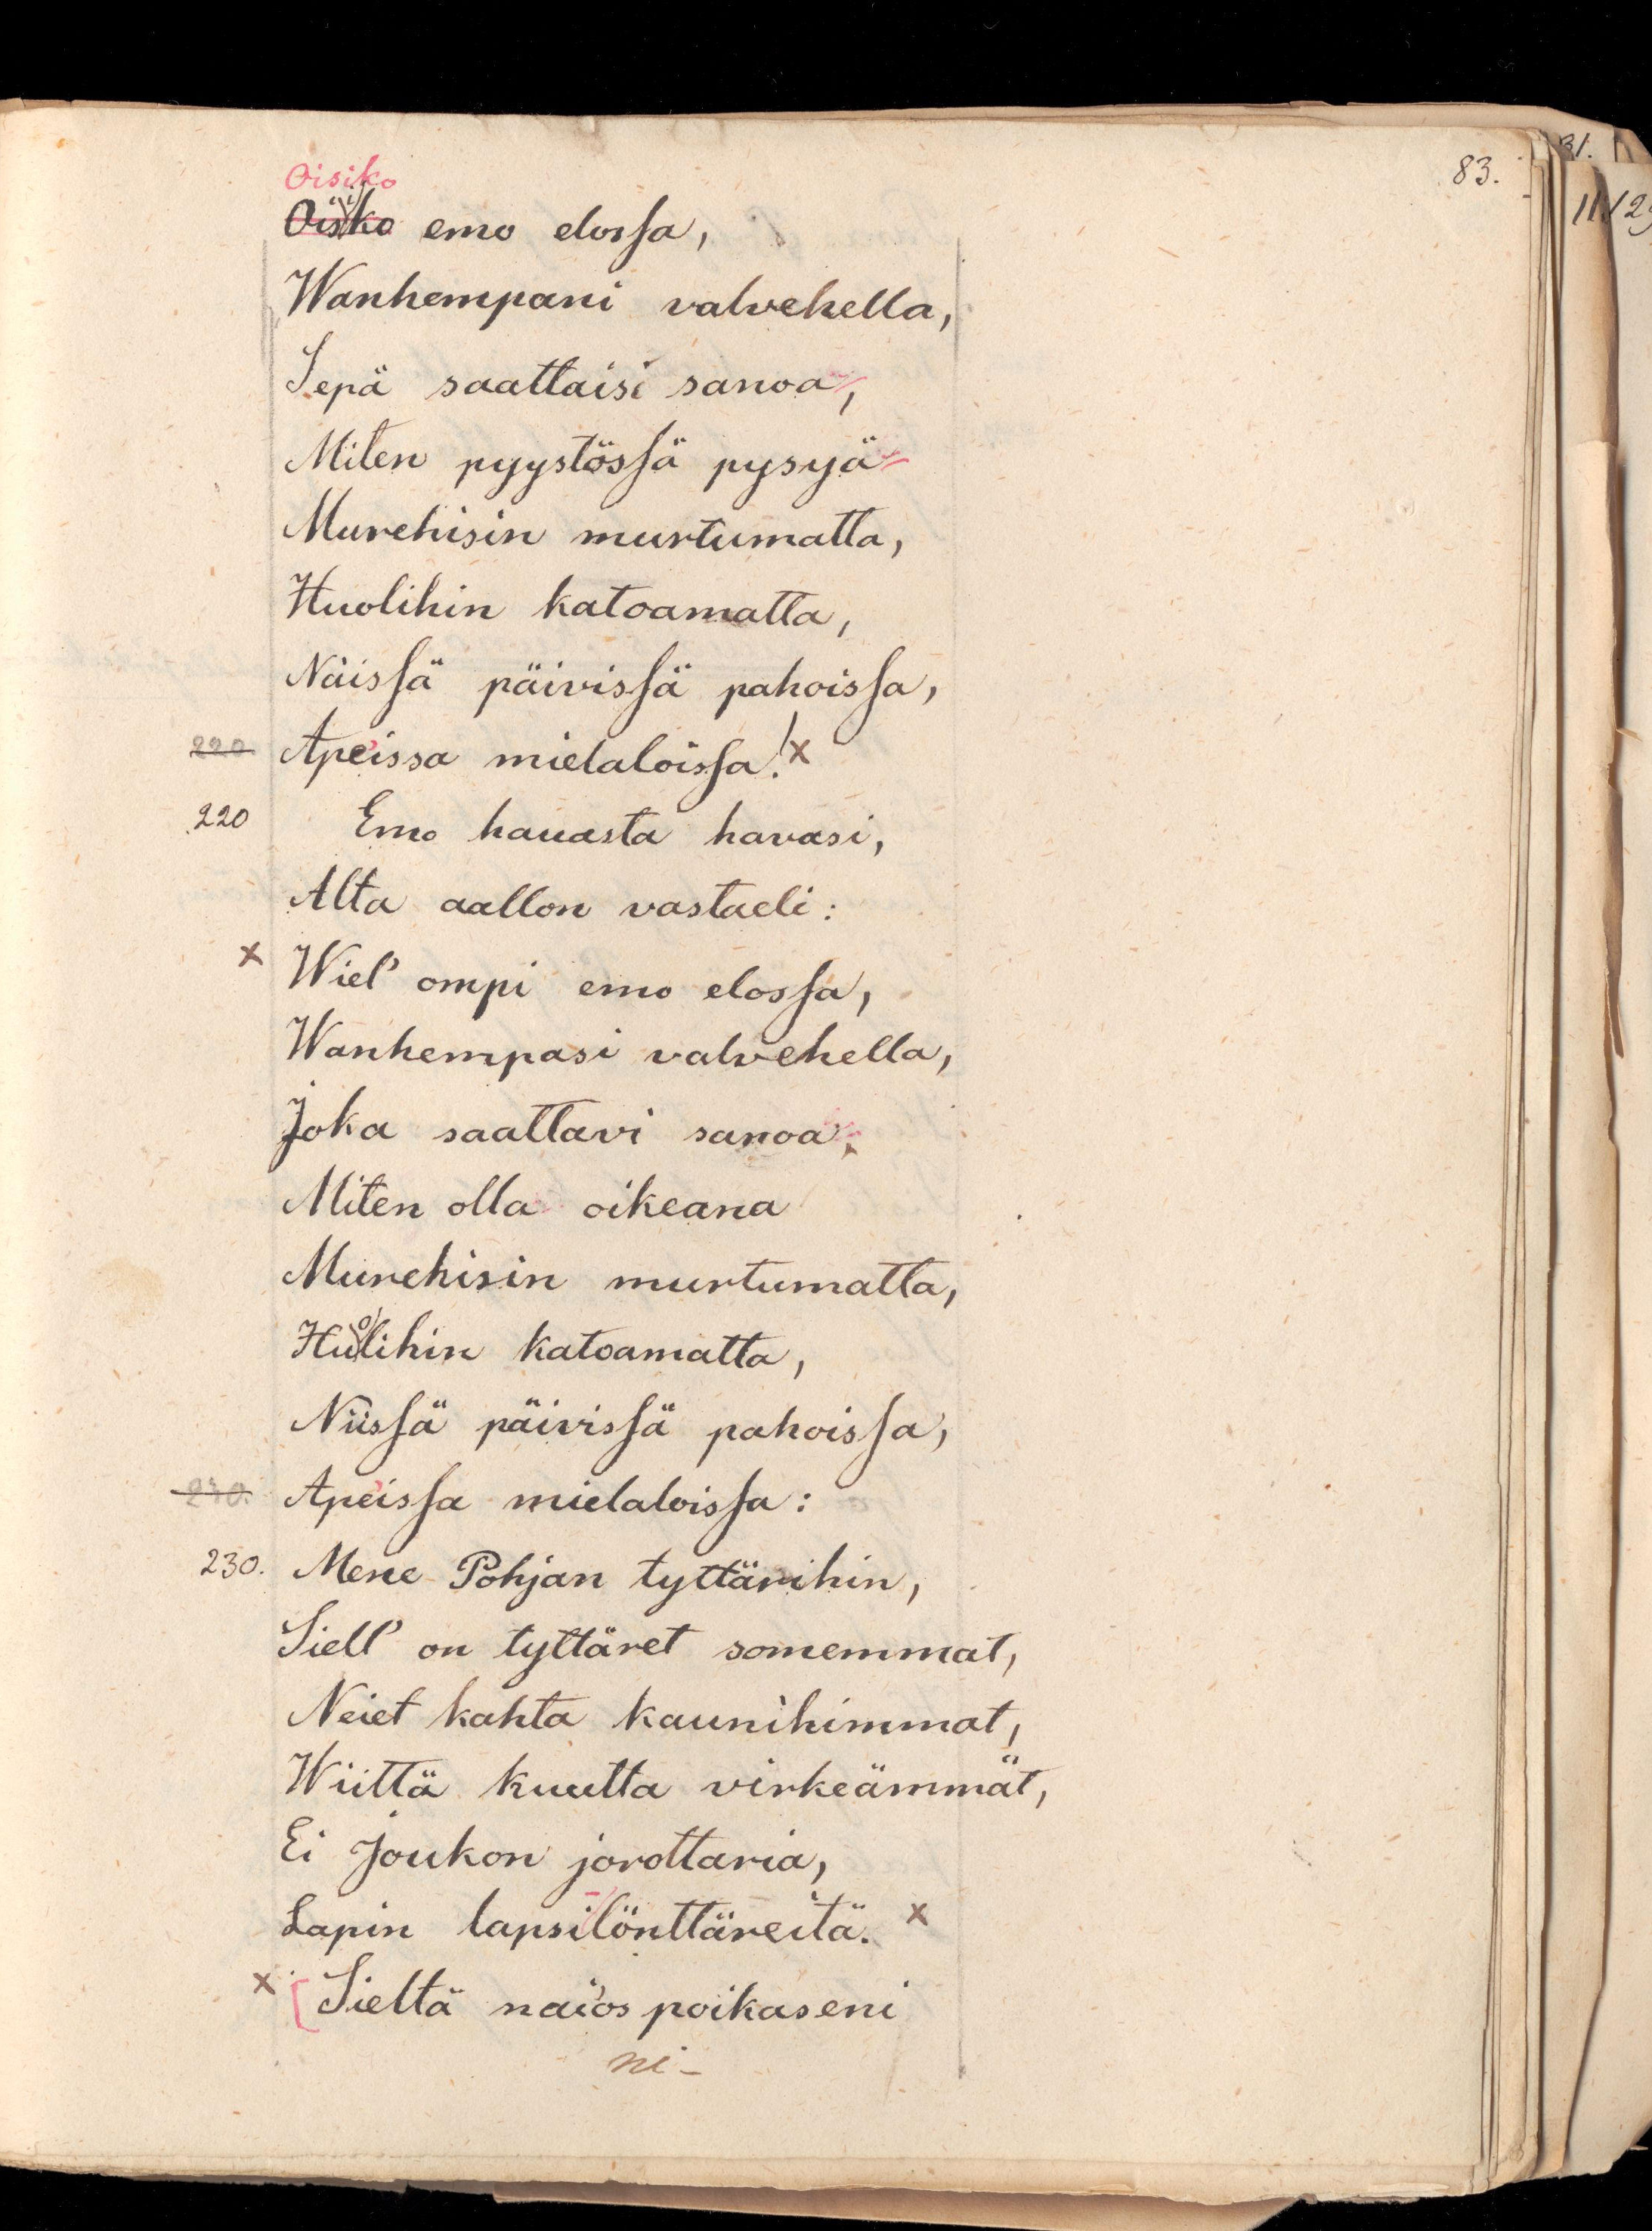 83.
31.
Oisiko
Oisko emo elossa,
Wanhempani valvehella,
Sepä saattaisi sanoa,
Miten pyystössä pysyä
Murehisin murtumatta,
Huolihin katoamatta,
Näissä päivissä pahoissa,
220 Apeissa mielaloissa! x
220 Emo hauasta havasi,
Alta aallon vastaeli:
x Wiel' ompi emo elossa,
Wanhempasi valvehella,
Joka saattavi sanoa,
Miten olla oikeana
Murehisin murtumatta,
Huolihin katoamatta,
Niissä päivissä pahoissa,
230. Apeissa mielaloissa:
230. Mene Pohjan tyttärihin,
Siell' on tyttäret somemmat,
Neiet kahta kaunihimmat,
Wiittä kuutta virkeämmät,
Ei Joukon jorottaria,
Lapin lapsilönttäreitä. x
x [Sieltä naios poikaseni
ni-